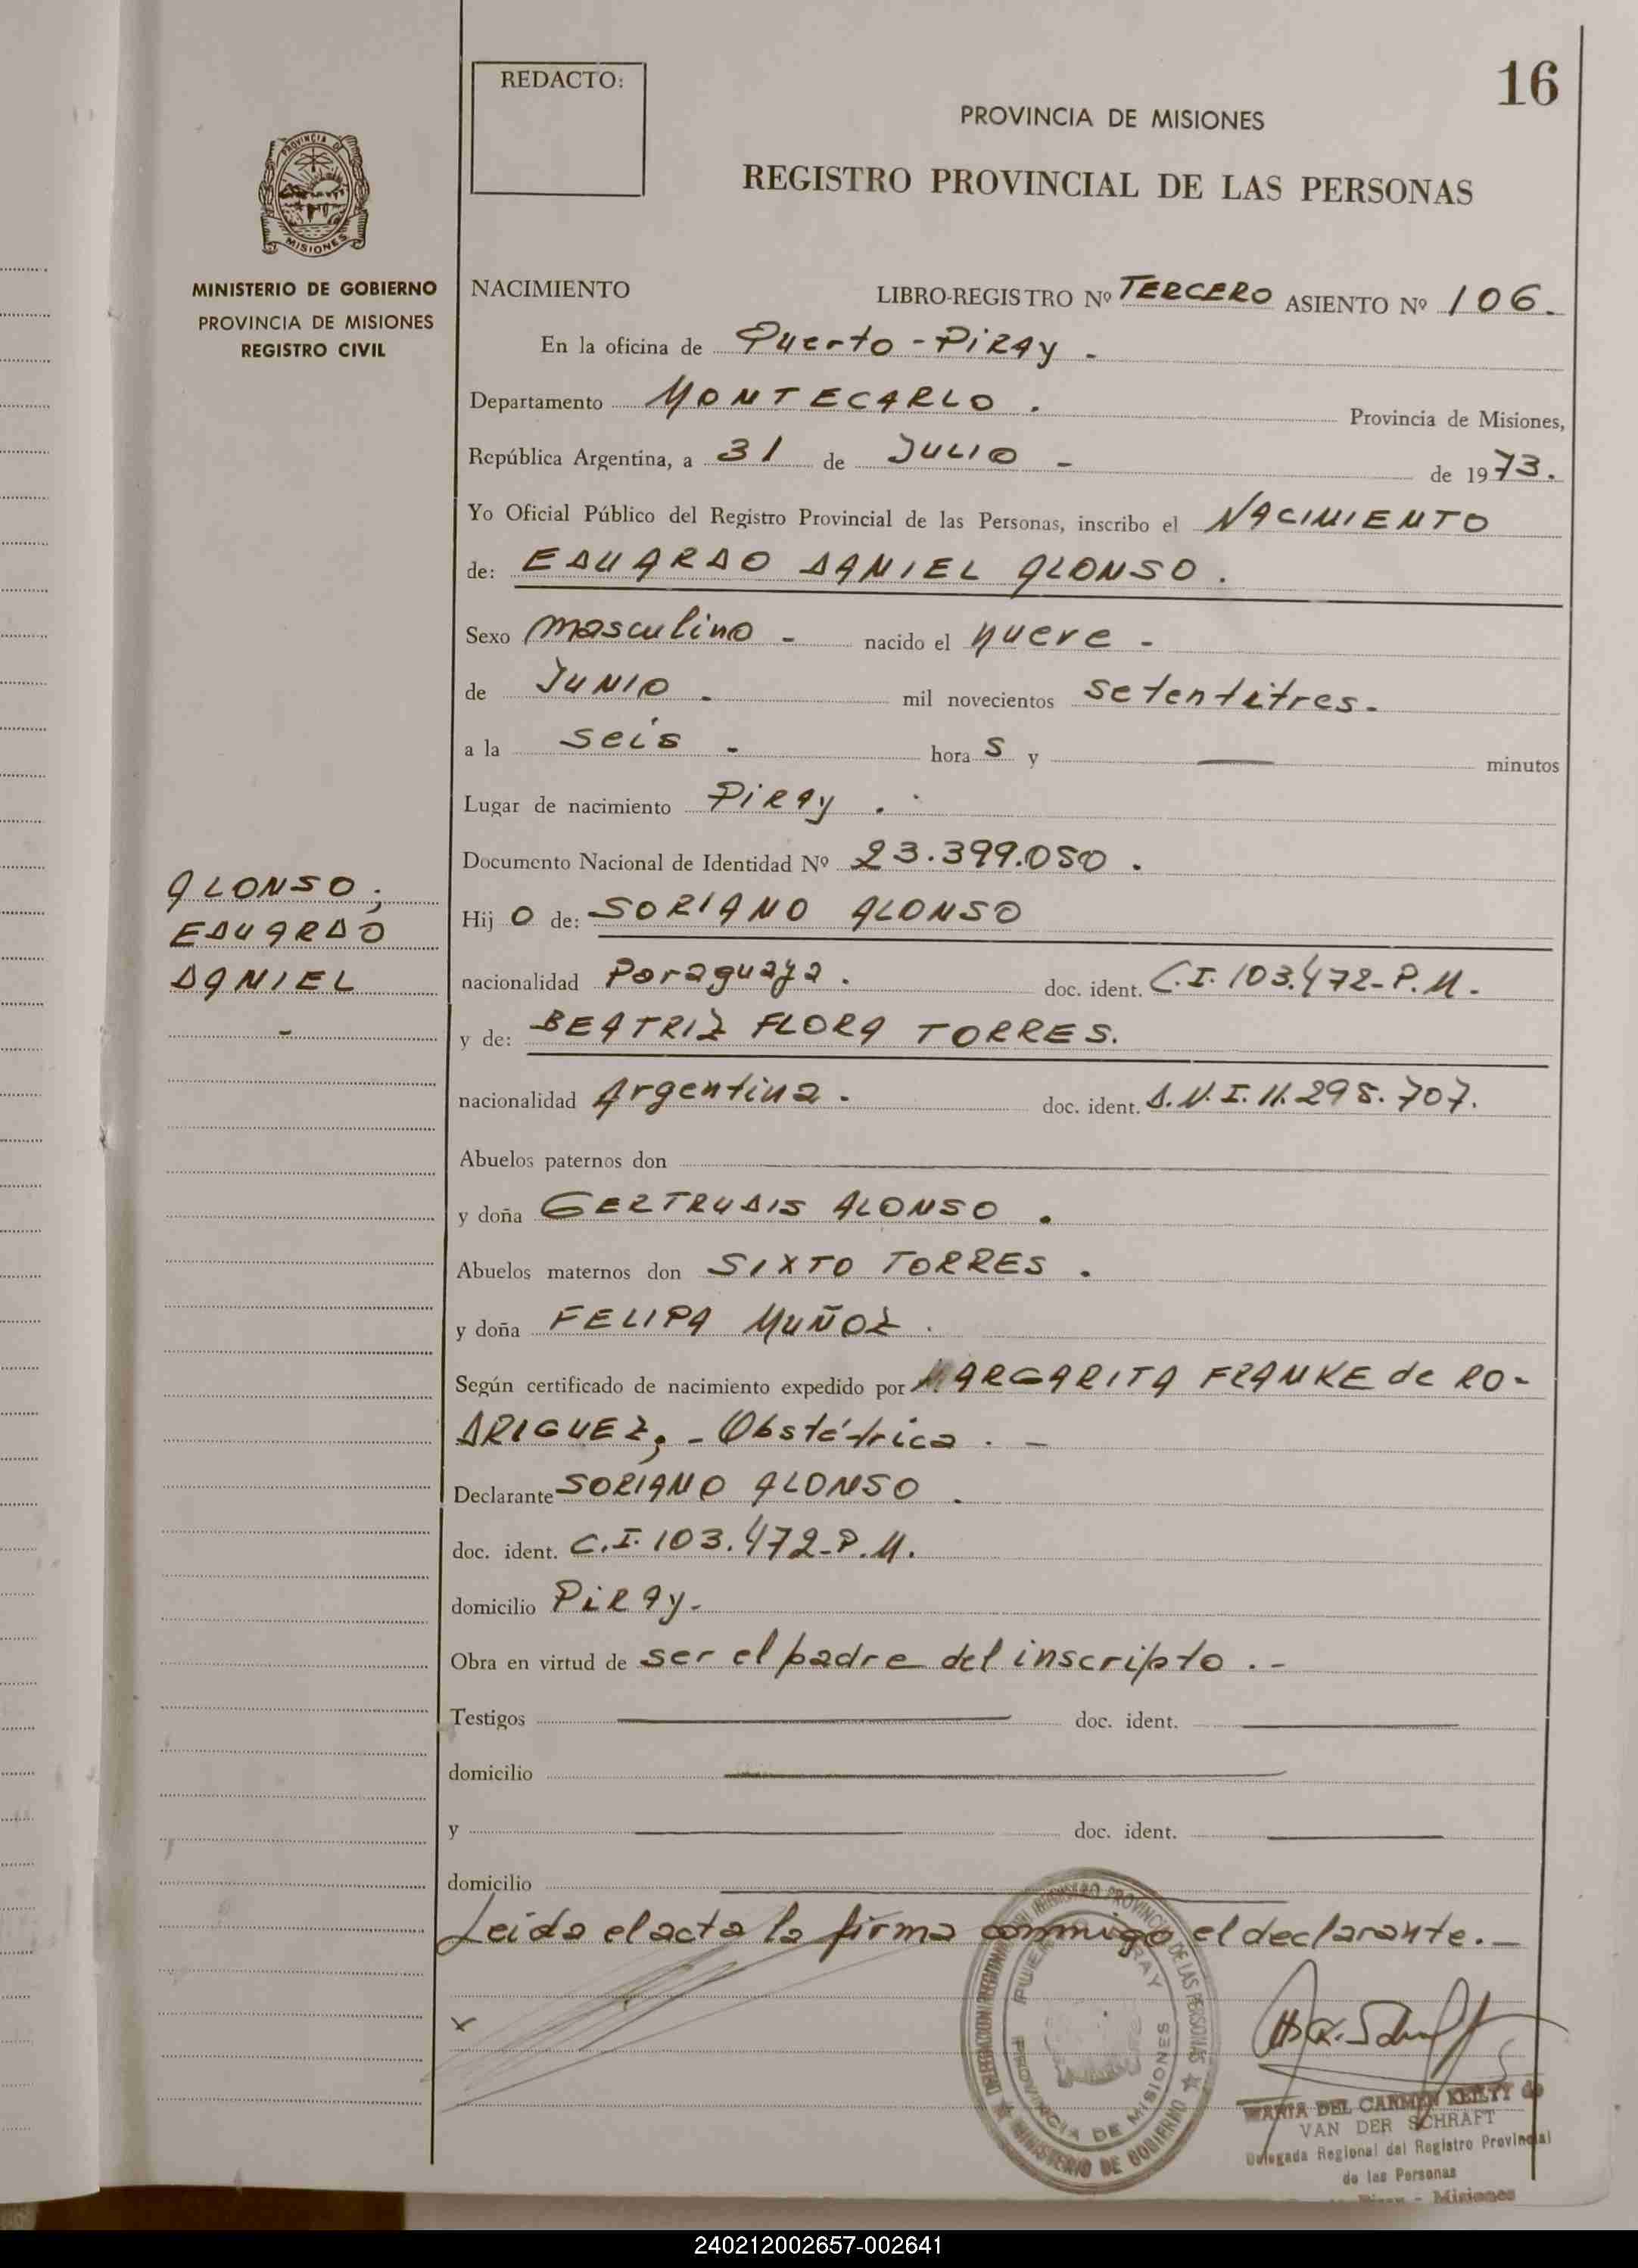 REDACTO:
16
PROVINCIA DE MISIONES
REGISTRO PROVINCIAL DE LAS PERSONAS
PROVINCIA DE
MISIONES
MINISTERIO DE GOBIERNO
PROVINCIA DE MISIONES
REGISTRO CIVIL
NACIMIENTO LIBRO-REGISTRO Nº TERCERO ASIENTO Nº 106.
En la oficina de Puerto-Piray -
Departamento MONTECARLO. Provincia de Misiones,
República Argentina, a 31 de JULIO - de 1973.
Yo Oficial Público del Registro Provincial de las Personas, inscribo el NACIMIENTO
de: EDUARDO DANIEL ALONSO.
Sexo masculino - nacido el nueve -
de JUNIO. mil novecientos setentitres.
a la seis - hora s y — minutos
Lugar de nacimiento Piray.
Documento Nacional de Identidad Nº 23.399.050.
ALONSO;
EDUARDO
DANIEL
-
Hij o de: SORIANO ALONSO
nacionalidad Paraguaya. doc. ident. C.I. 103.472-P.M.
y de: BEATRIZ FLORA TORRES.
nacionalidad Argentina. doc. ident. D.N.I. 11.295.707.
Abuelos paternos don —
y doña GERTRUDIS ALONSO.
Abuelos maternos don SIXTO TORRES.
y doña FELIPA MUÑOZ.
Según certificado de nacimiento expedido por MARGARITA FRANKE de RO-
DRIGUEZ, - Obstétrica. -
Declarante SORIANO ALONSO.
doc. ident. C.I. 103.472-P.M.
domicilio Piray-
Obra en virtud de ser el padre del inscripto. -
Testigos — doc. ident. —
domicilio —
y — doc. ident. —
domicilio —
Leida el acta la firma conmigo el declarante. -
x
REGISTRO PROVINCIAL DE LAS PERSONAS
MINISTERIO DE GOBIERNO
PROVINCIA DE MISIONES
MARIA DEL CARMEN KEILTY de
VAN DER SCHRAFT
Delegada Regional del Registro Provincial
de las Personas
Piray - Misiones
240212002657-002641